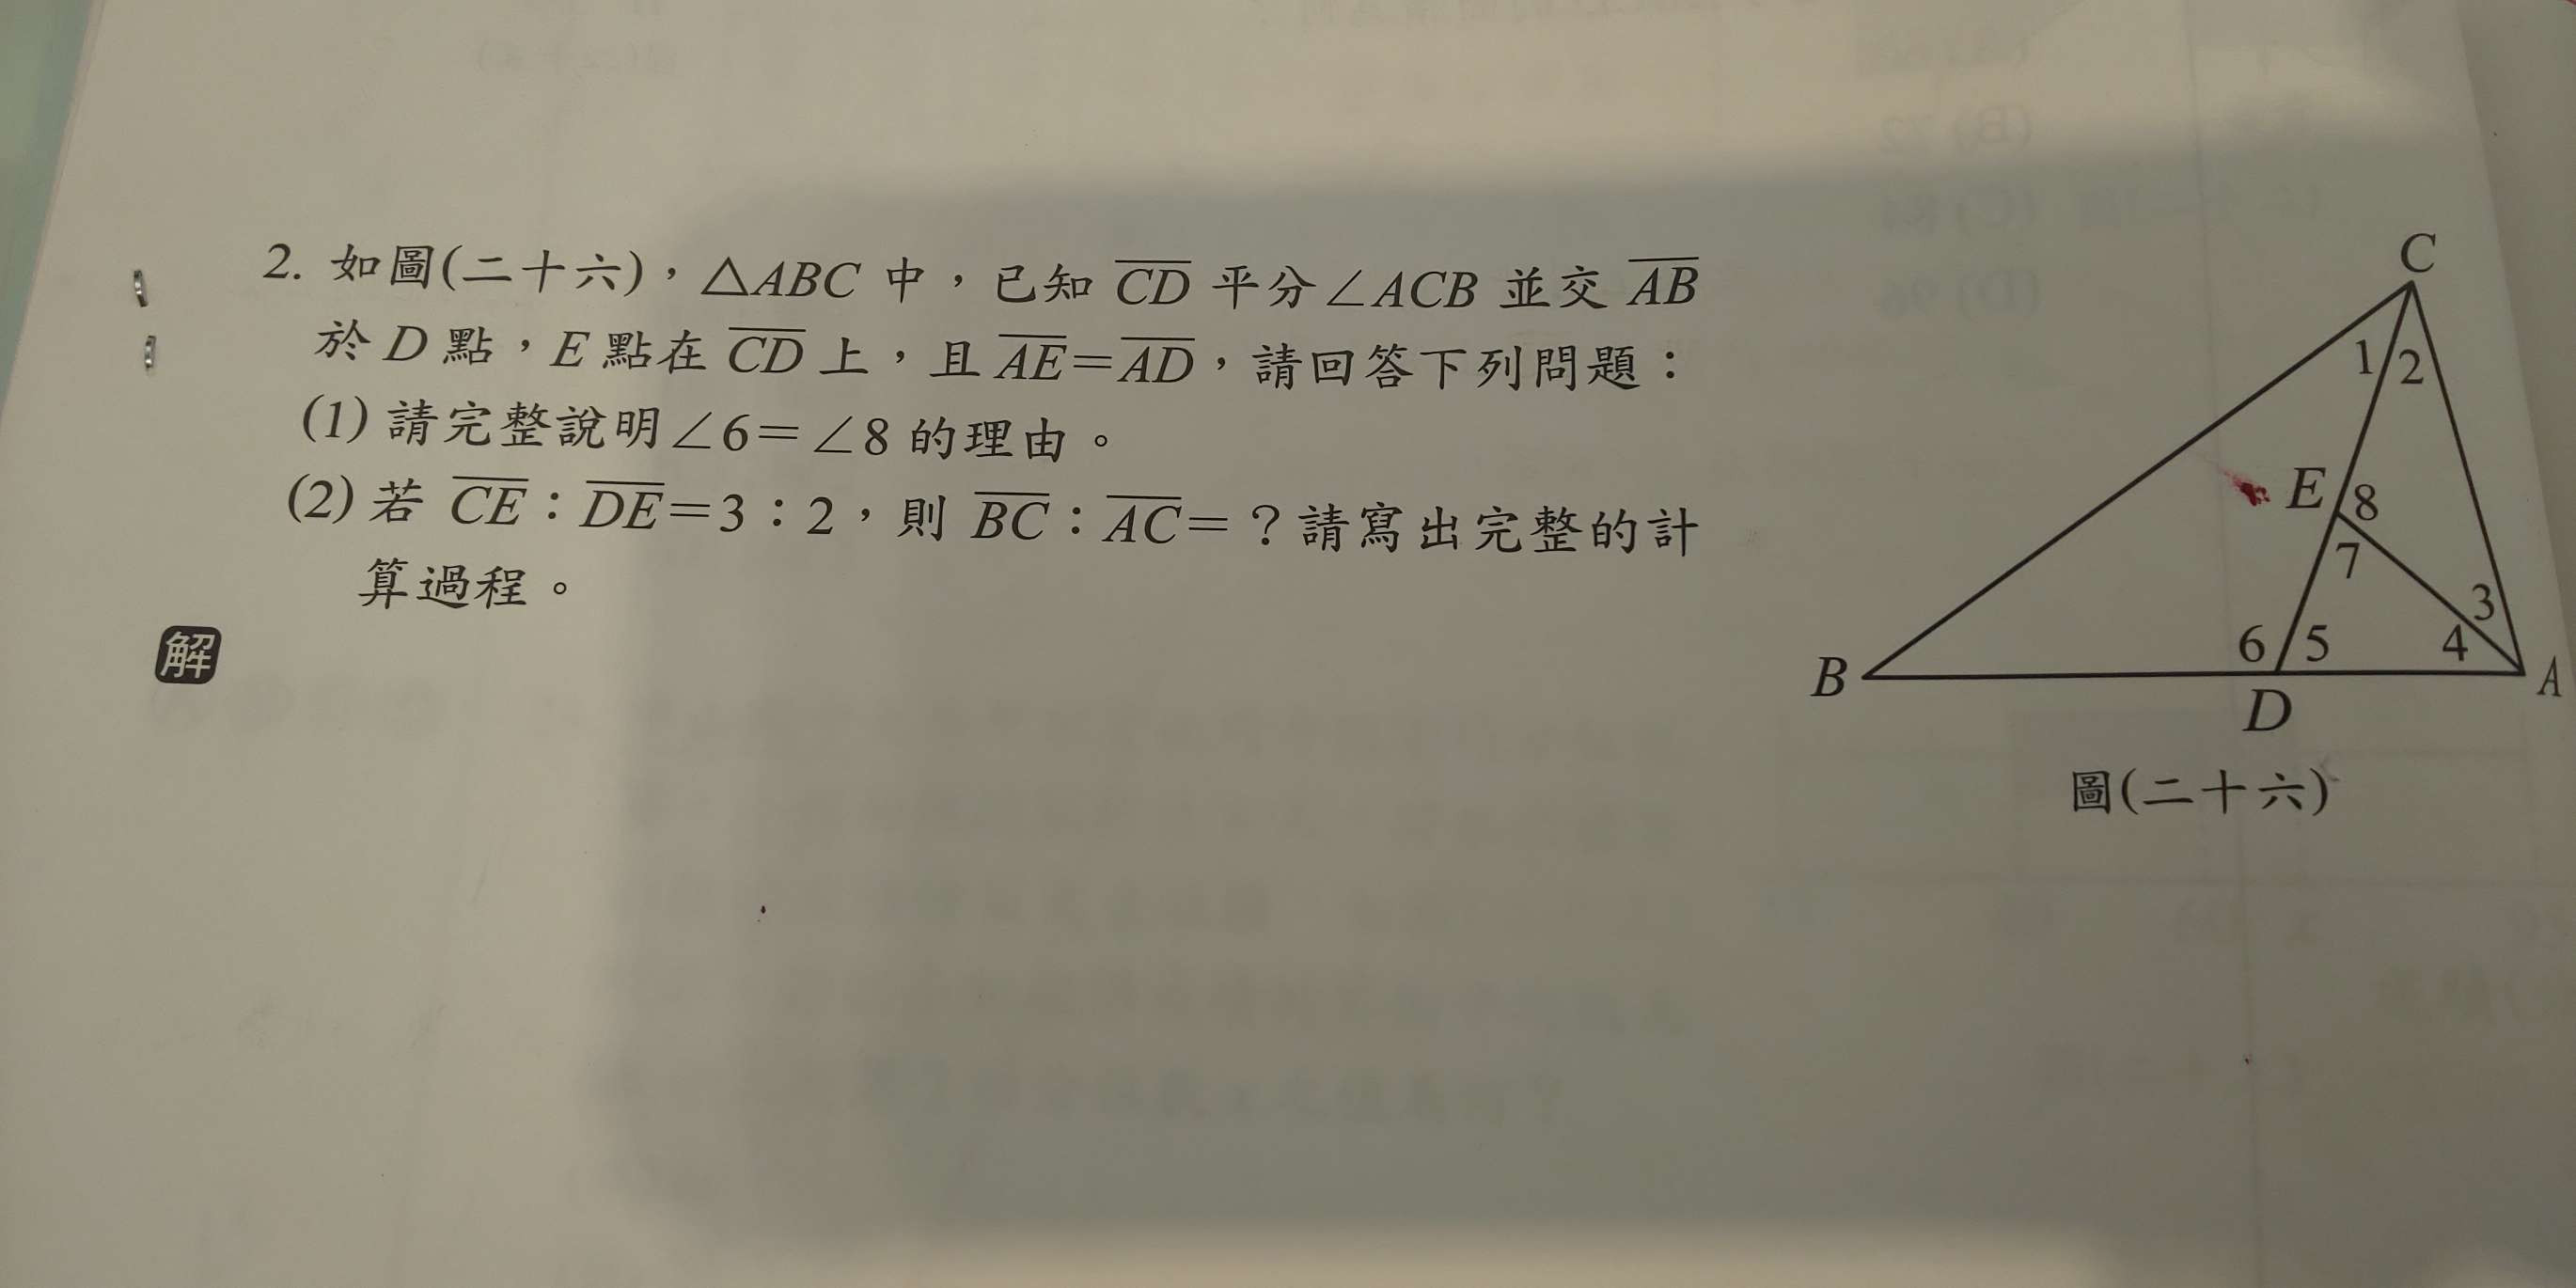 2. 如圖(二十六)，△ABC 中，已知 CD 平分∠ACB 並交 AB
於 D 點，E 點在 CD 上，且 AE＝AD，請回答下列問題：
(1) 請完整說明∠6＝∠8 的理由。
(2) 若 CE：DE＝3：2，則 BC：AC＝？請寫出完整的計
算過程。
解
C
1 2
E 8
7
3
6 5 4
B A
D
圖(二十六)